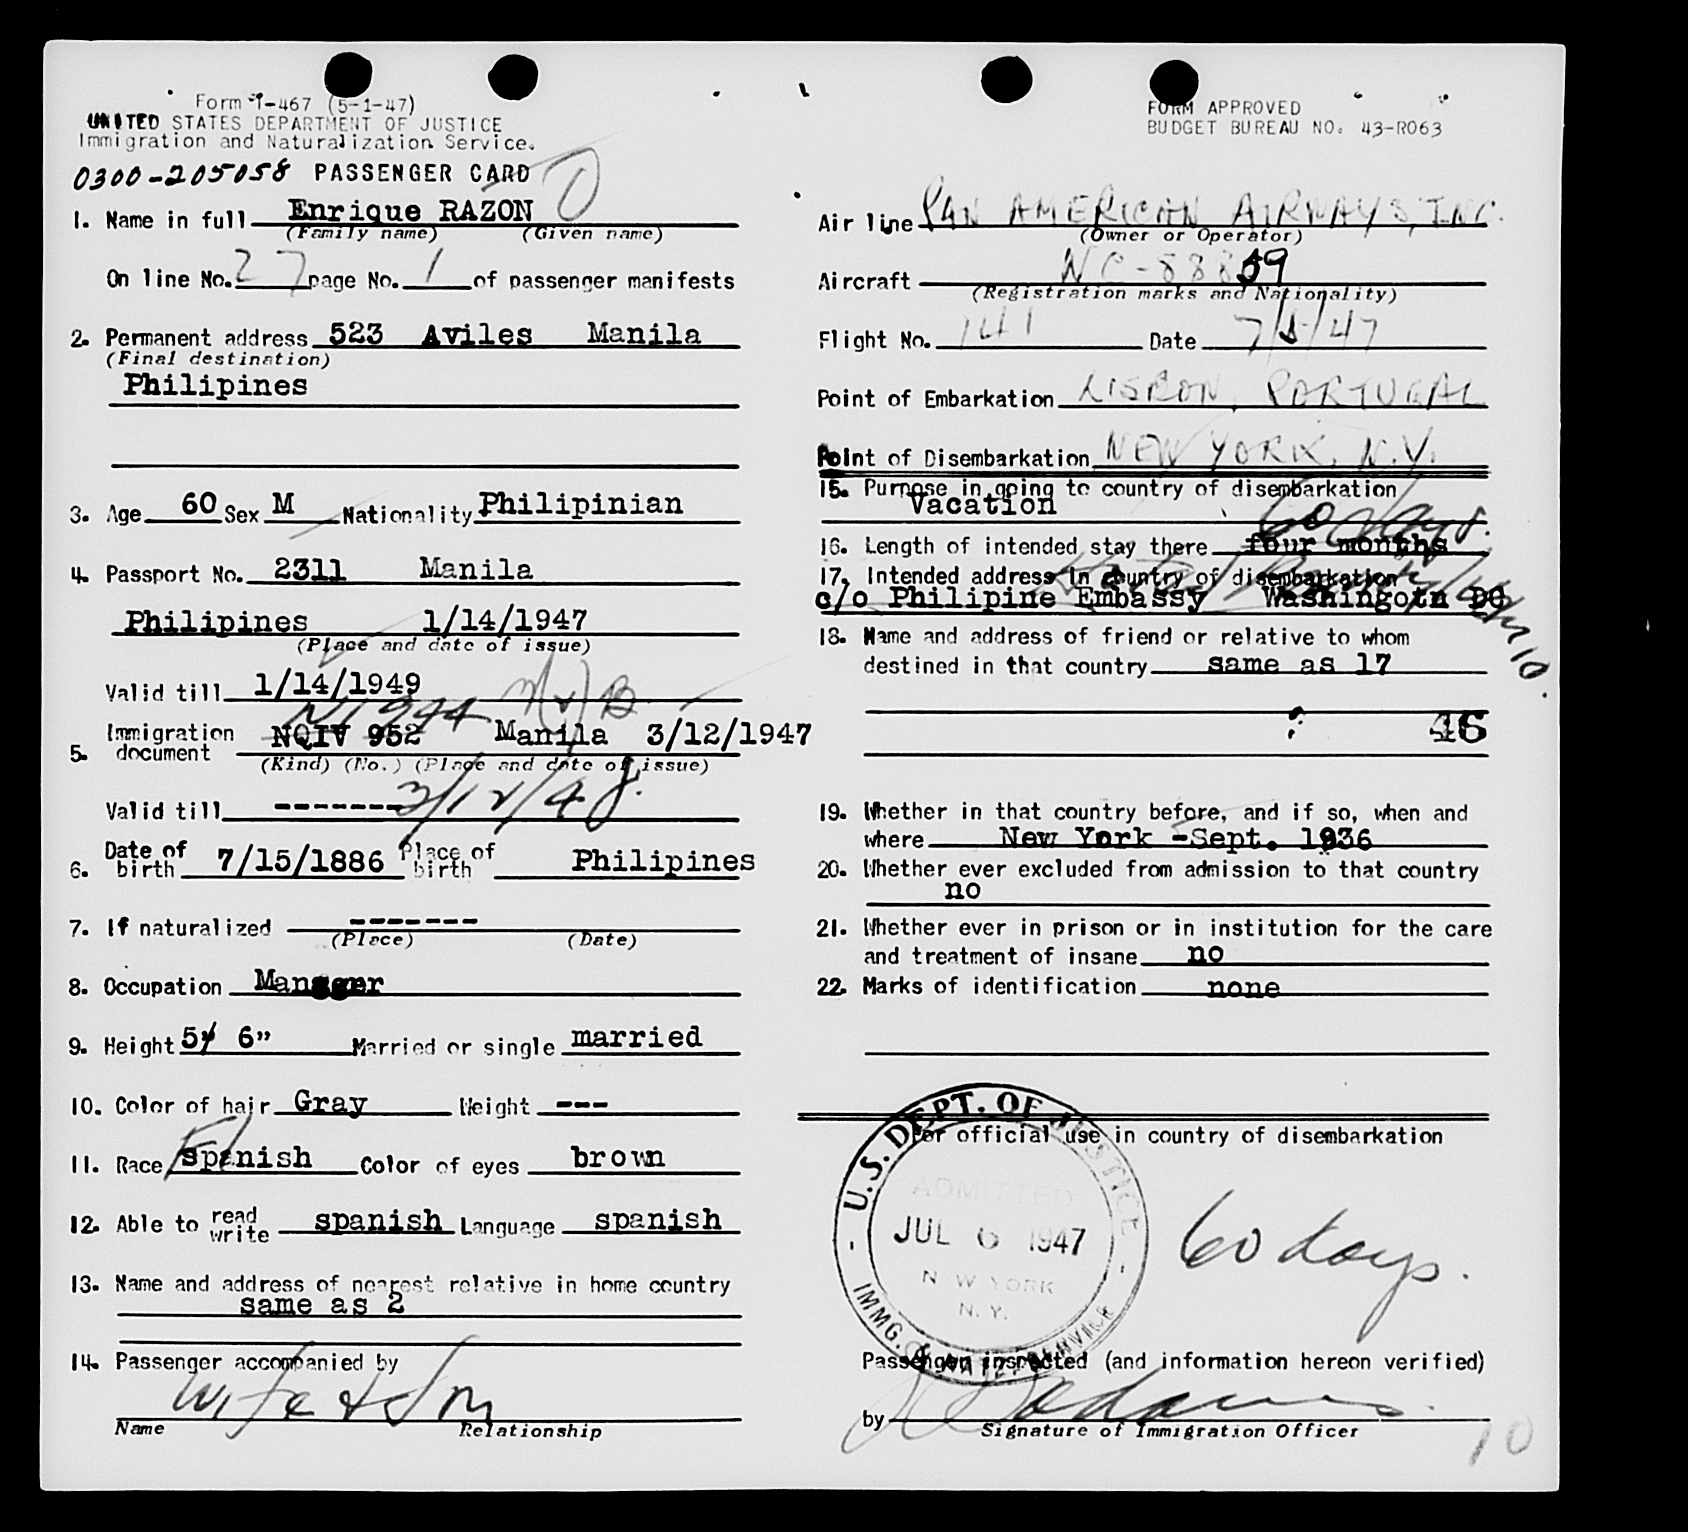 Form I-467 (5-1-47)
UNITED STATES DEPARTMENT OF JUSTICE
Immigration and Naturalization Service.
0300-205058 PASSENGER CARD
1. Name in full Enrique RAZON
(Family name) (Given name)
On line No. 27 page No. 1 of passenger manifests
2. Permanent address 523 Aviles Manila
(Final destination)
Philipines
3. Age 60 Sex M Nationality Philipinian
4. Passport No. 2311 Manila
Philipines 1/14/1947
(Place and date of issue)
Valid till 1/14/1949
5. Immigration document NQIV 952 Manila 3/12/1947
(Kind) (No.) (Place and date of issue)
Valid till ------- 3/12/48
6. Date of birth 7/15/1886 Place of birth Philipines
7. If naturalized -------
(Place) (Date)
8. Occupation Manager
9. Height 5' 6" Married or single married
10. Color of hair Gray Weight ---
11. Race spanish Color of eyes brown
12. Able to read write spanish Language spanish
13. Name and address of nearest relative in home country
same as 2
14. Passenger accompanied by
wife & son
Name Relationship
FORM APPROVED
BUDGET BUREAU NO. 43-R063
Air line PAN AMERICAN AIRWAYS, INC.
(Owner or Operator)
Aircraft NC-88859
(Registration marks and Nationality)
Flight No. 141 Date 7/5/47
Point of Embarkation LISBON, PORTUGAL
Point of Disembarkation NEW YORK, N.Y.
15. Purpose in going to country of disembarkation
Vacation
60 days.
16. Length of intended stay there four months
17. Intended address in country of disembarkation
c/o Philipine Embassy Washingotn DC
18. Name and address of friend or relative to whom
destined in that country same as 17
46
19. Whether in that country before, and if so, when and
where New York -Sept. 1936
20. Whether ever excluded from admission to that country
no
21. Whether ever in prison or in institution for the care
and treatment of insane no
22. Marks of identification none
For official use in country of disembarkation
U.S. DEPT. OF JUSTICE
ADMITTED
JUL 6 1947
NEW YORK
N.Y.
IMMG. & NATZ. SERVICE
60 days.
Passenger inspected (and information hereon verified)
by
Signature of Immigration Officer
10